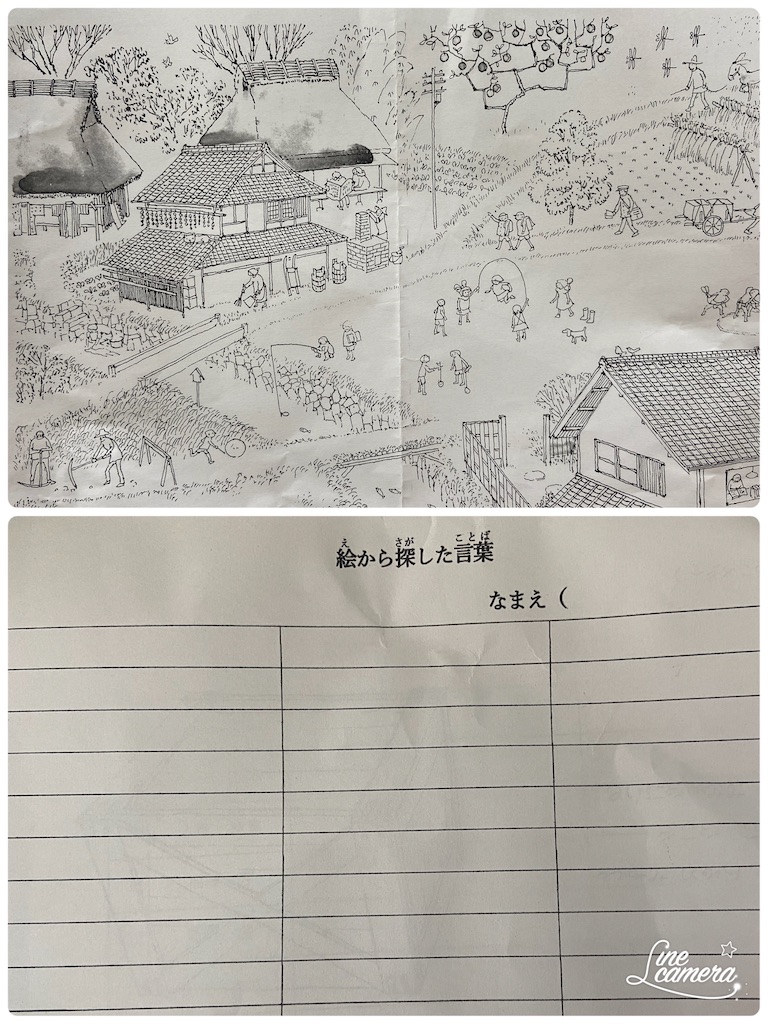 絵から探した言葉
えさがことば
なまえ（
Line camera